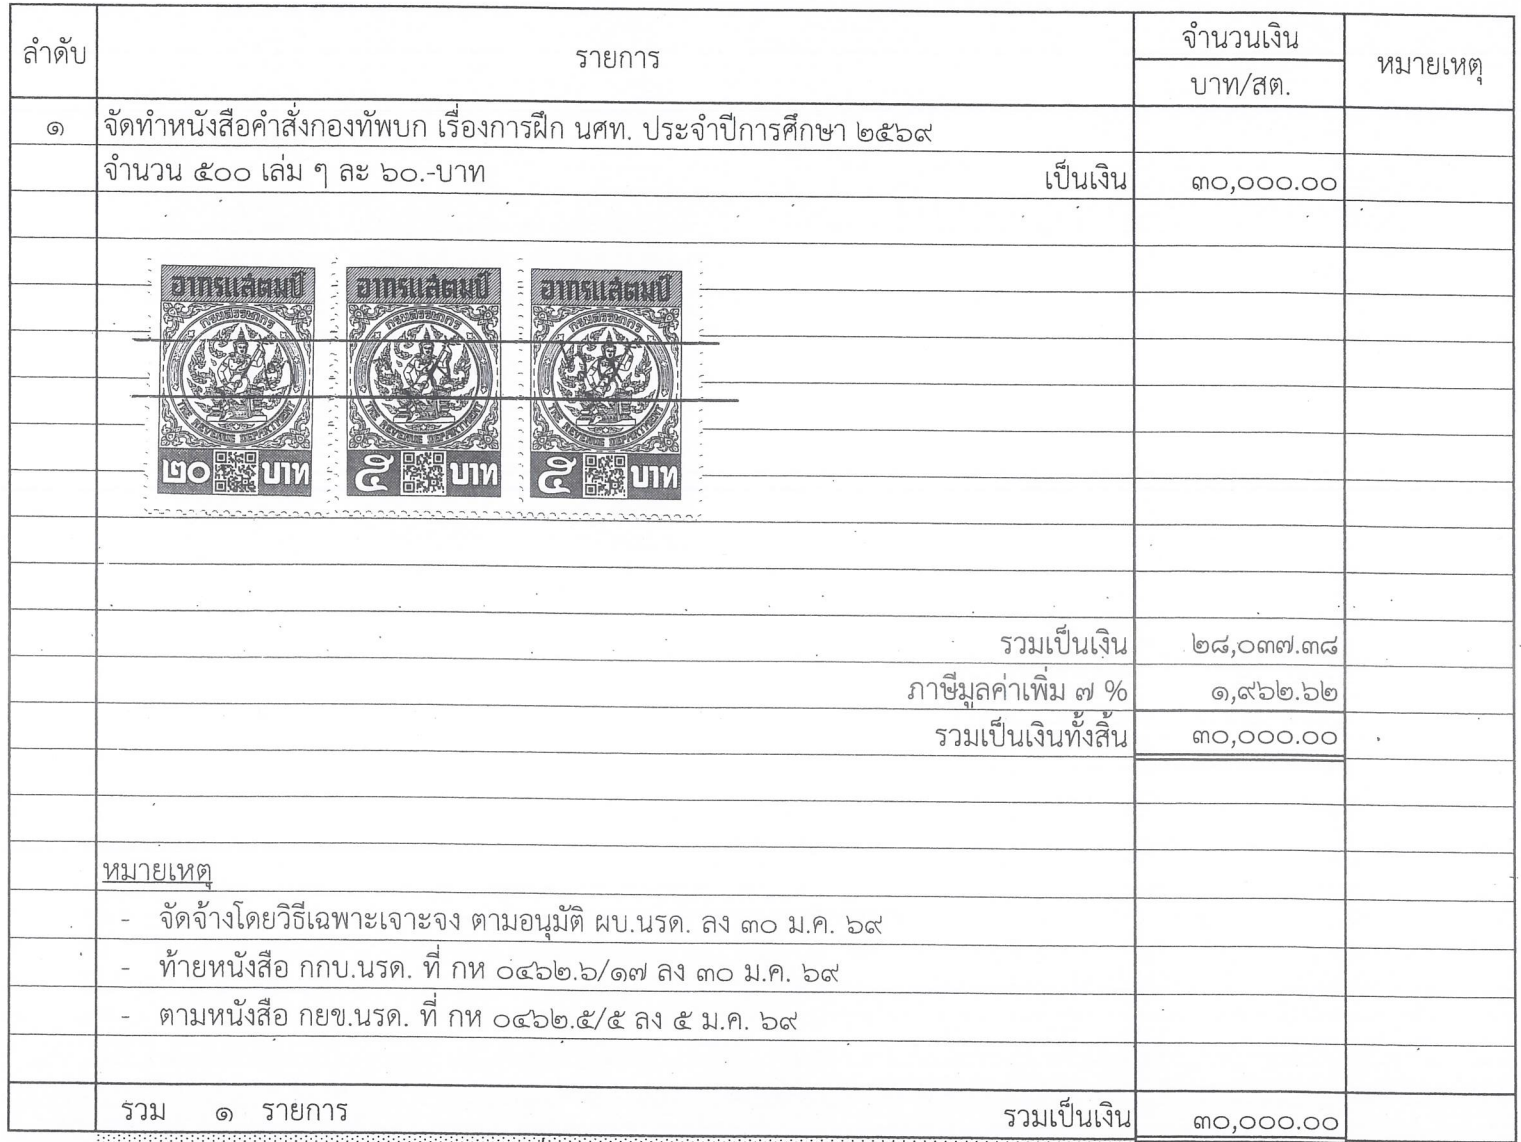 ลำดับ รายการ จำนวนเงิน หมายเหตุ
บาท/สต.
๑ จัดทำหนังสือคำสั่งกองทัพบก เรื่องการฝึก นศท. ประจำปีการศึกษา ๒๕๖๙
จำนวน ๕๐๐ เล่ม ๆ ละ ๖๐.-บาท เป็นเงิน ๓๐,๐๐๐.๐๐
อากรแสตมป์ อากรแสตมป์ อากรแสตมป์
กรมสรรพากร กรมสรรพากร กรมสรรพากร
THE REVENUE DEPARTMENT THE REVENUE DEPARTMENT THE REVENUE DEPARTMENT
๒๐ บาท ๕ บาท ๕ บาท
รวมเป็นเงิน ๒๘,๐๓๗.๓๘
ภาษีมูลค่าเพิ่ม ๗ % ๑,๙๖๒.๖๒
รวมเป็นเงินทั้งสิ้น ๓๐,๐๐๐.๐๐
หมายเหตุ
- จัดจ้างโดยวิธีเฉพาะเจาะจง ตามอนุมัติ ผบ.นรด. ลง ๓๐ ม.ค. ๖๙
- ท้ายหนังสือ กกบ.นรด. ที่ กห ๐๔๖๒.๖/๑๗ ลง ๓๐ ม.ค. ๖๙
- ตามหนังสือ กยข.นรด. ที่ กห ๐๔๖๒.๕/๕ ลง ๕ ม.ค. ๖๙
รวม ๑ รายการ รวมเป็นเงิน ๓๐,๐๐๐.๐๐